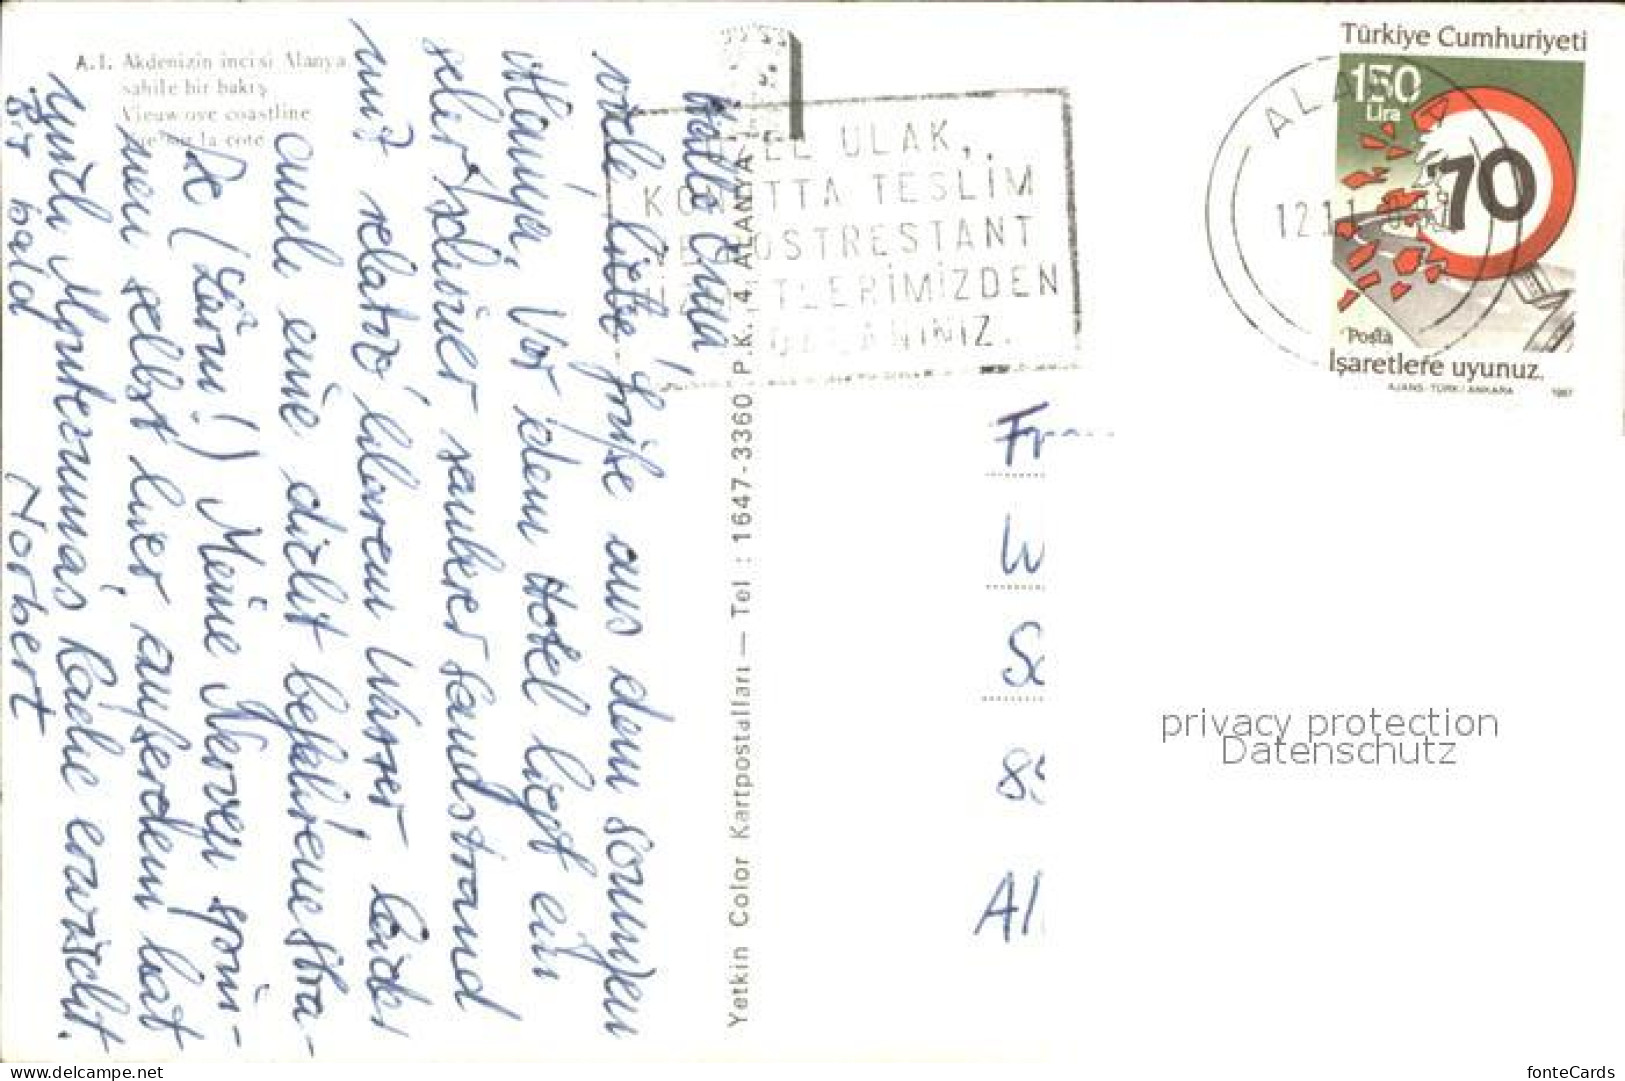 A.I. Akdenizin incisi Alanya
sahile bir bakış
Vieuw ove coastline
la cote
Hallo Oma!
viele liebe Grüße aus dem sonnigen
Alanya. Vor dem Hotel liegt ein
sehr schöner sauberer Sandstrand
mit relativ klarem Wasser, leider
auch eine dicht befahrene Stra-
ße (Lärm!) Meine Nerven spü-
ren selbst hier, außerdem hat
mich Montezumas Rache erwischt.
Bis bald
Norbert
Yetkin Color Kartpostalları — Tel : 1647-3360 P.K. 4 ALANYA
ULAK,
TESLİM
POSTRESTANT
Türkiye Cumhuriyeti
150
Lira
70
Posta
İşaretlere uyunuz.
AJANS-TÜRK / ANKARA 1987
ALA
12.11
privacy protection
Datenschutz
delcampe.net
fonteCards